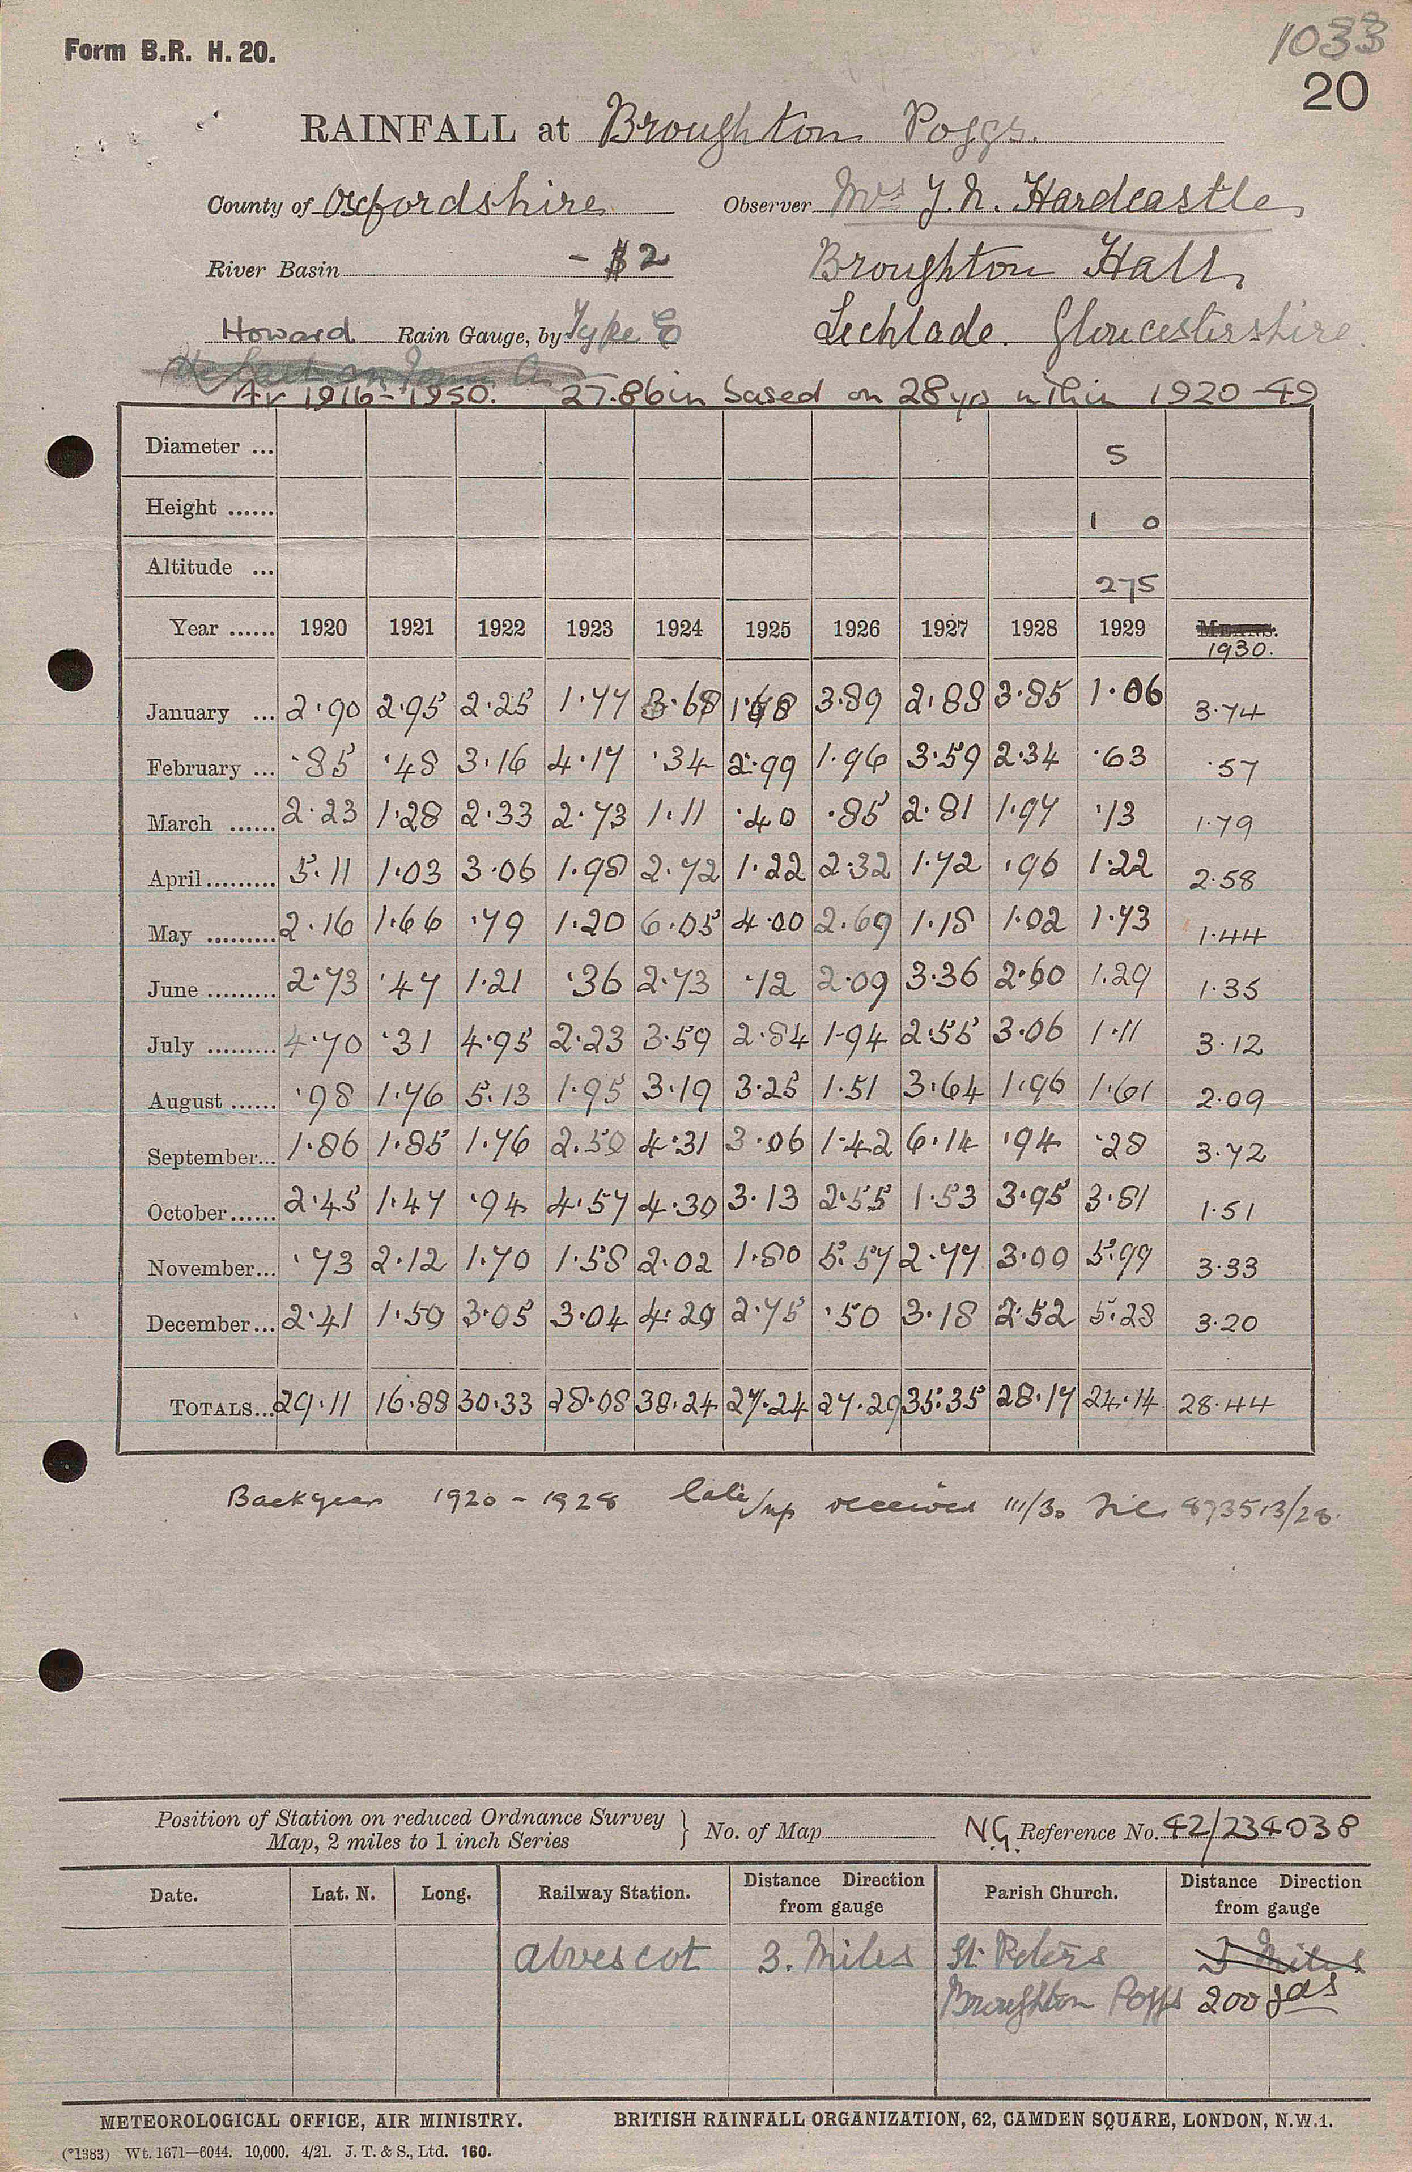 Form B.R. H. 20.
1033
20
RAINFALL at Broughton Poggs.
County of Oxfordshire Observer Mrs J. N. Hardcastle,
River Basin - 2 Broughton Hall,
Howard Rain Gauge, by Type E Lechlade. Gloucestershire.
Av 1916-1950. 27.86in based on 28 yrs within 1920-49
Diameter ... 5
Height ...... 1 0
Altitude ... 275
Year ...... 1920 1921 1922 1923 1924 1925 1926 1927 1928 1929 MEANS.
1930.
January ... 2.90 2.95 2.25 1.77 3.68 1.68 3.89 2.88 3.85 1.06 3.74
February ... .85 .48 3.16 4.17 .34 2.99 1.96 3.59 2.34 .63 .57
March ...... 2.23 1.28 2.33 2.73 1.11 .40 .85 2.81 1.97 .13 1.79
April.......... 5.11 1.03 3.06 1.98 2.72 1.22 2.32 1.72 .96 1.22 2.58
May .......... 2.16 1.66 .79 1.20 6.05 4.00 2.69 1.18 1.02 1.73 1.44
June .......... 2.73 .47 1.21 .36 2.73 .12 2.09 3.36 2.60 1.29 1.35
July .......... 4.70 .31 4.95 2.23 3.59 2.84 1.94 2.55 3.06 1.11 3.12
August ...... .98 1.76 5.13 1.95 3.19 3.25 1.51 3.64 1.96 1.61 2.09
September... 1.86 1.85 1.76 2.50 4.31 3.06 1.42 6.14 .94 .28 3.72
October...... 2.45 1.47 .94 4.57 4.30 3.13 2.55 1.53 3.95 3.81 1.51
November... .73 2.12 1.70 1.58 2.02 1.80 5.57 2.77 3.00 5.99 3.33
December... 2.41 1.50 3.05 3.04 4.20 2.75 .50 3.18 2.52 5.28 3.20
TOTALS... 29.11 16.88 30.33 28.08 38.24 27.24 27.29 35.35 28.17 24.14 28.44
Back years 1920 - 1928 received 1/1/30 File 873513/28.
Position of Station on reduced Ordnance Survey
Map, 2 miles to 1 inch Series } No. of Map NG Reference No. 42/234038
Date. Lat. N. Long. Railway Station. Distance Direction from gauge Parish Church. Distance Direction from gauge
Alvescot 3. Miles St. Peters 3 Miles
Broughton Poggs 200 yds
METEOROLOGICAL OFFICE, AIR MINISTRY. BRITISH RAINFALL ORGANIZATION, 62, CAMDEN SQUARE, LONDON, N.W.1.
(*1383) Wt. 1671—6044. 10,000. 4/21. J. T. & S., Ltd. 160.